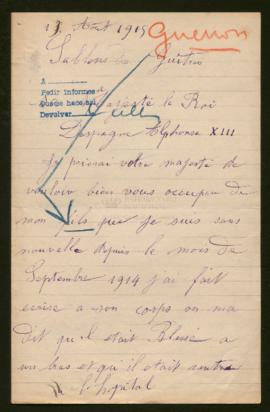 13 Aout 1915
Guenon
Sablons Guitres
A
Pedir informes
Que se hace aqui
Devolver
Majesté le Roi
D'espagne Alphonse XIII
Je prierai votre majesté de
vouloir bien vous occuper de
mon fils que je suis sans
nouvelle depuis le mois de
Septembre 1914 j'ai fait
ecrire a son corps on ma
dit qu'il etait Blessé a
un bras et qu'il etait rentre
a l'hopital